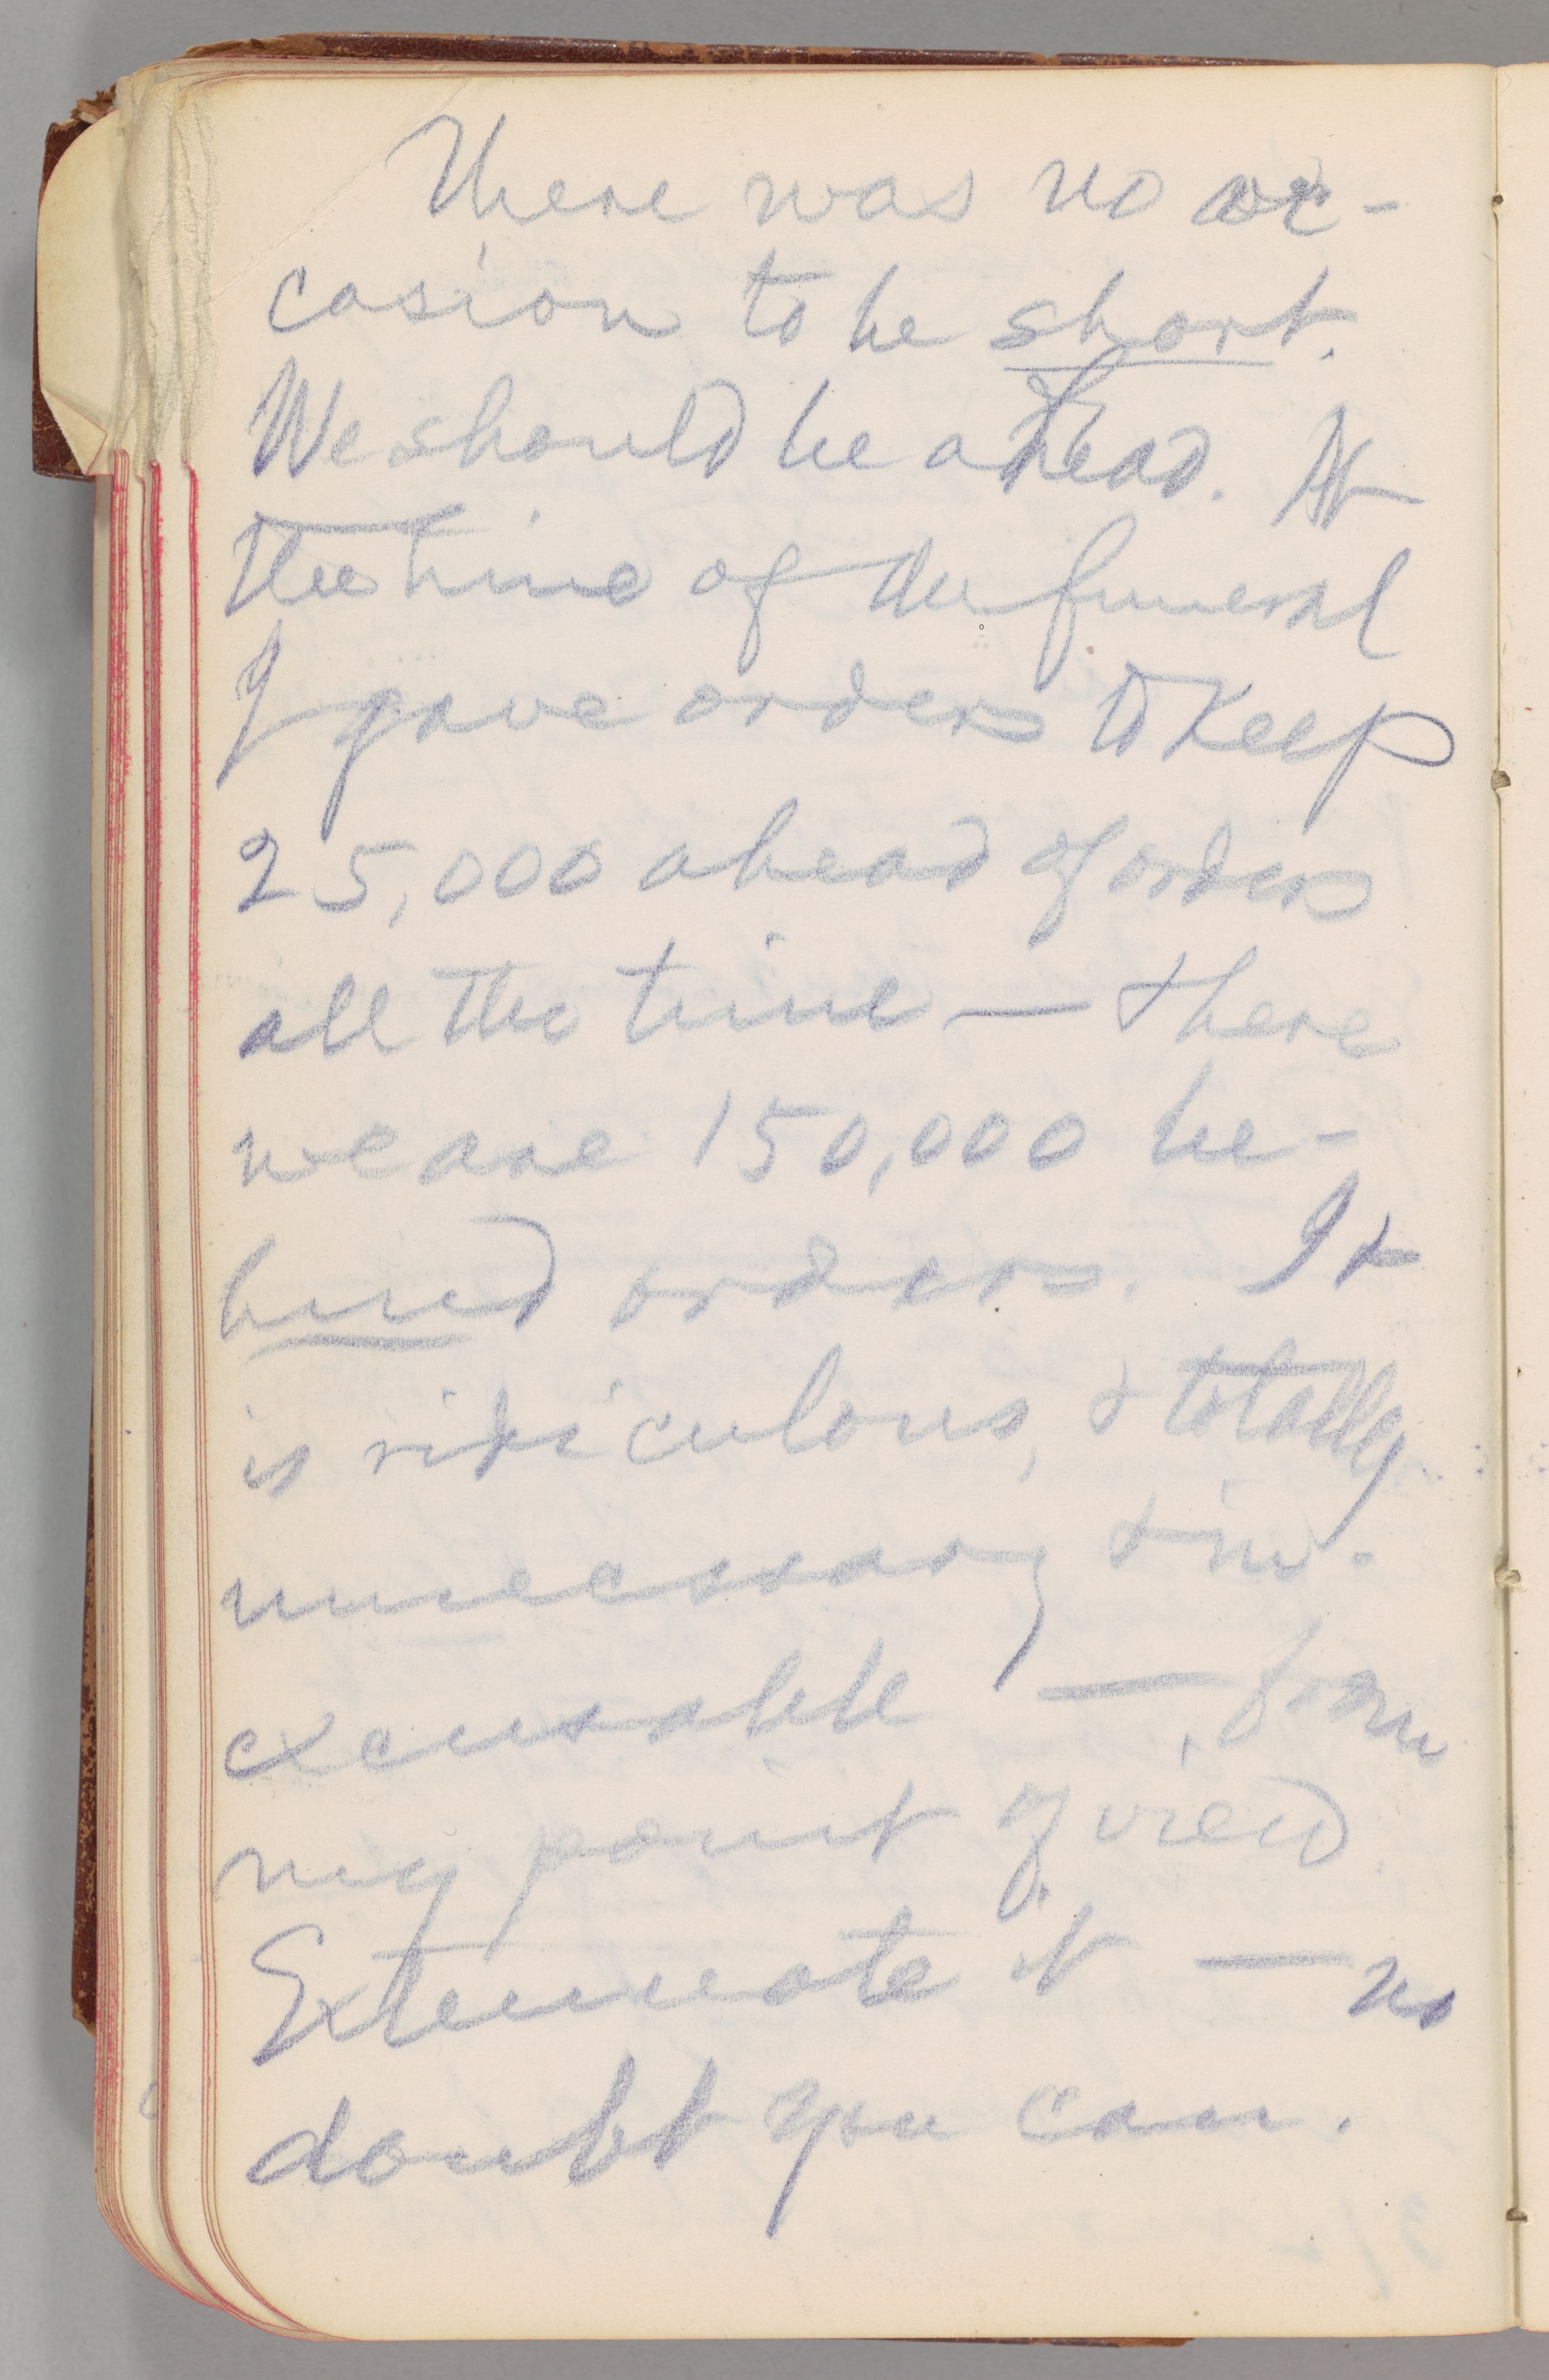 There was no oc-
casion to be short.
We should be ahead. At
the time of the funeral
I gave orders to keep
25,000 ahead of orders
all the time — & here
we are 150,000 be-
hind orders. It
is ridiculous, & totally
unnecessary & in-
excusable — from
my point of view.
Extenuate it — no
doubt you can.